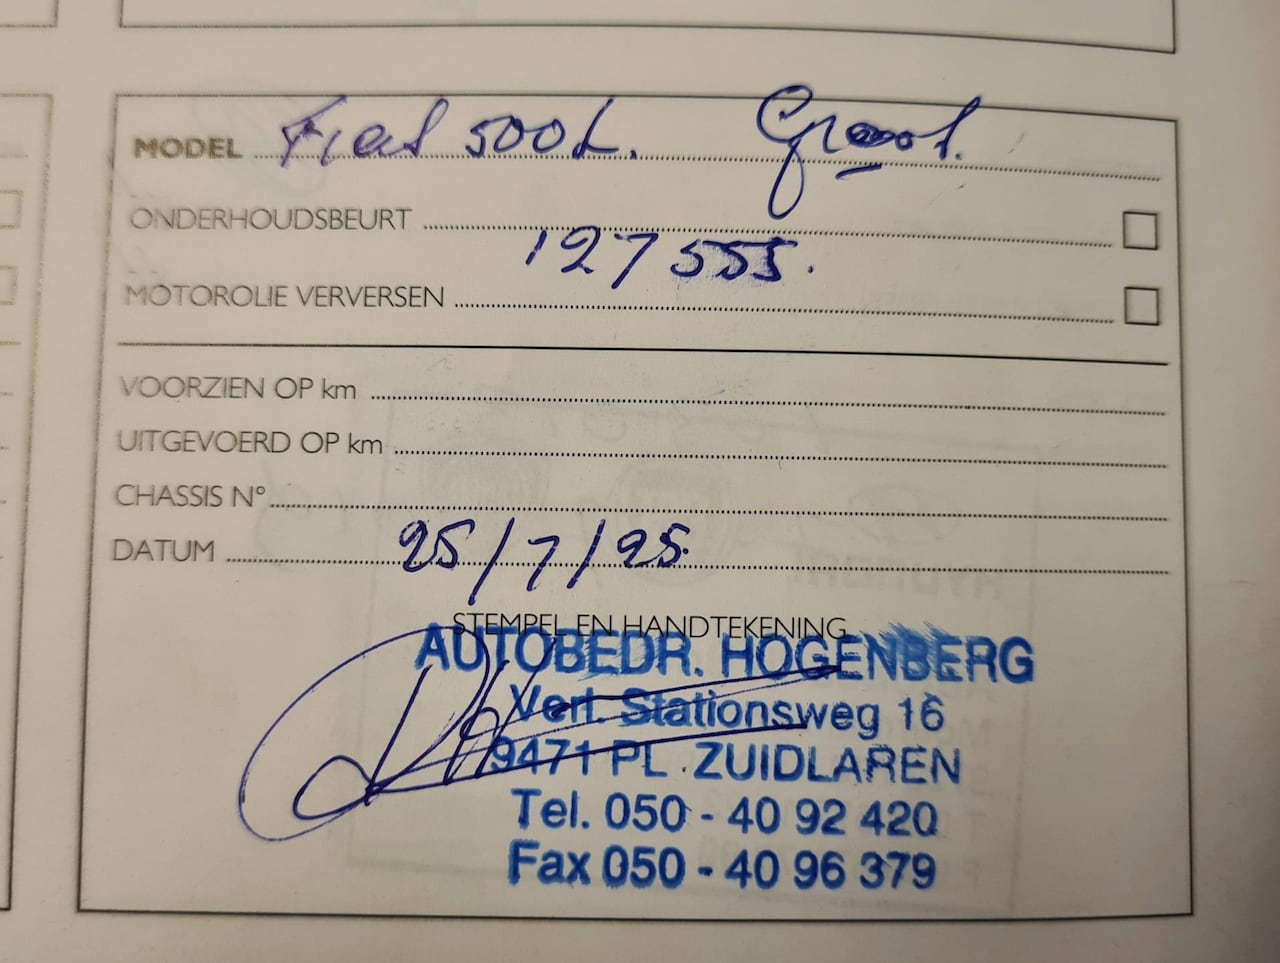 MODEL Fiat 500L. Groot.
ONDERHOUDSBEURT
127555.
MOTOROLIE VERVERSEN
VOORZIEN OP km
UITGEVOERD OP km
CHASSIS N°
DATUM 25/7/25.
STEMPEL EN HANDTEKENING
AUTOBEDR. HOGENBERG
Verl. Stationsweg 16
9471 PL ZUIDLAREN
Tel. 050 - 40 92 420
Fax 050 - 40 96 379